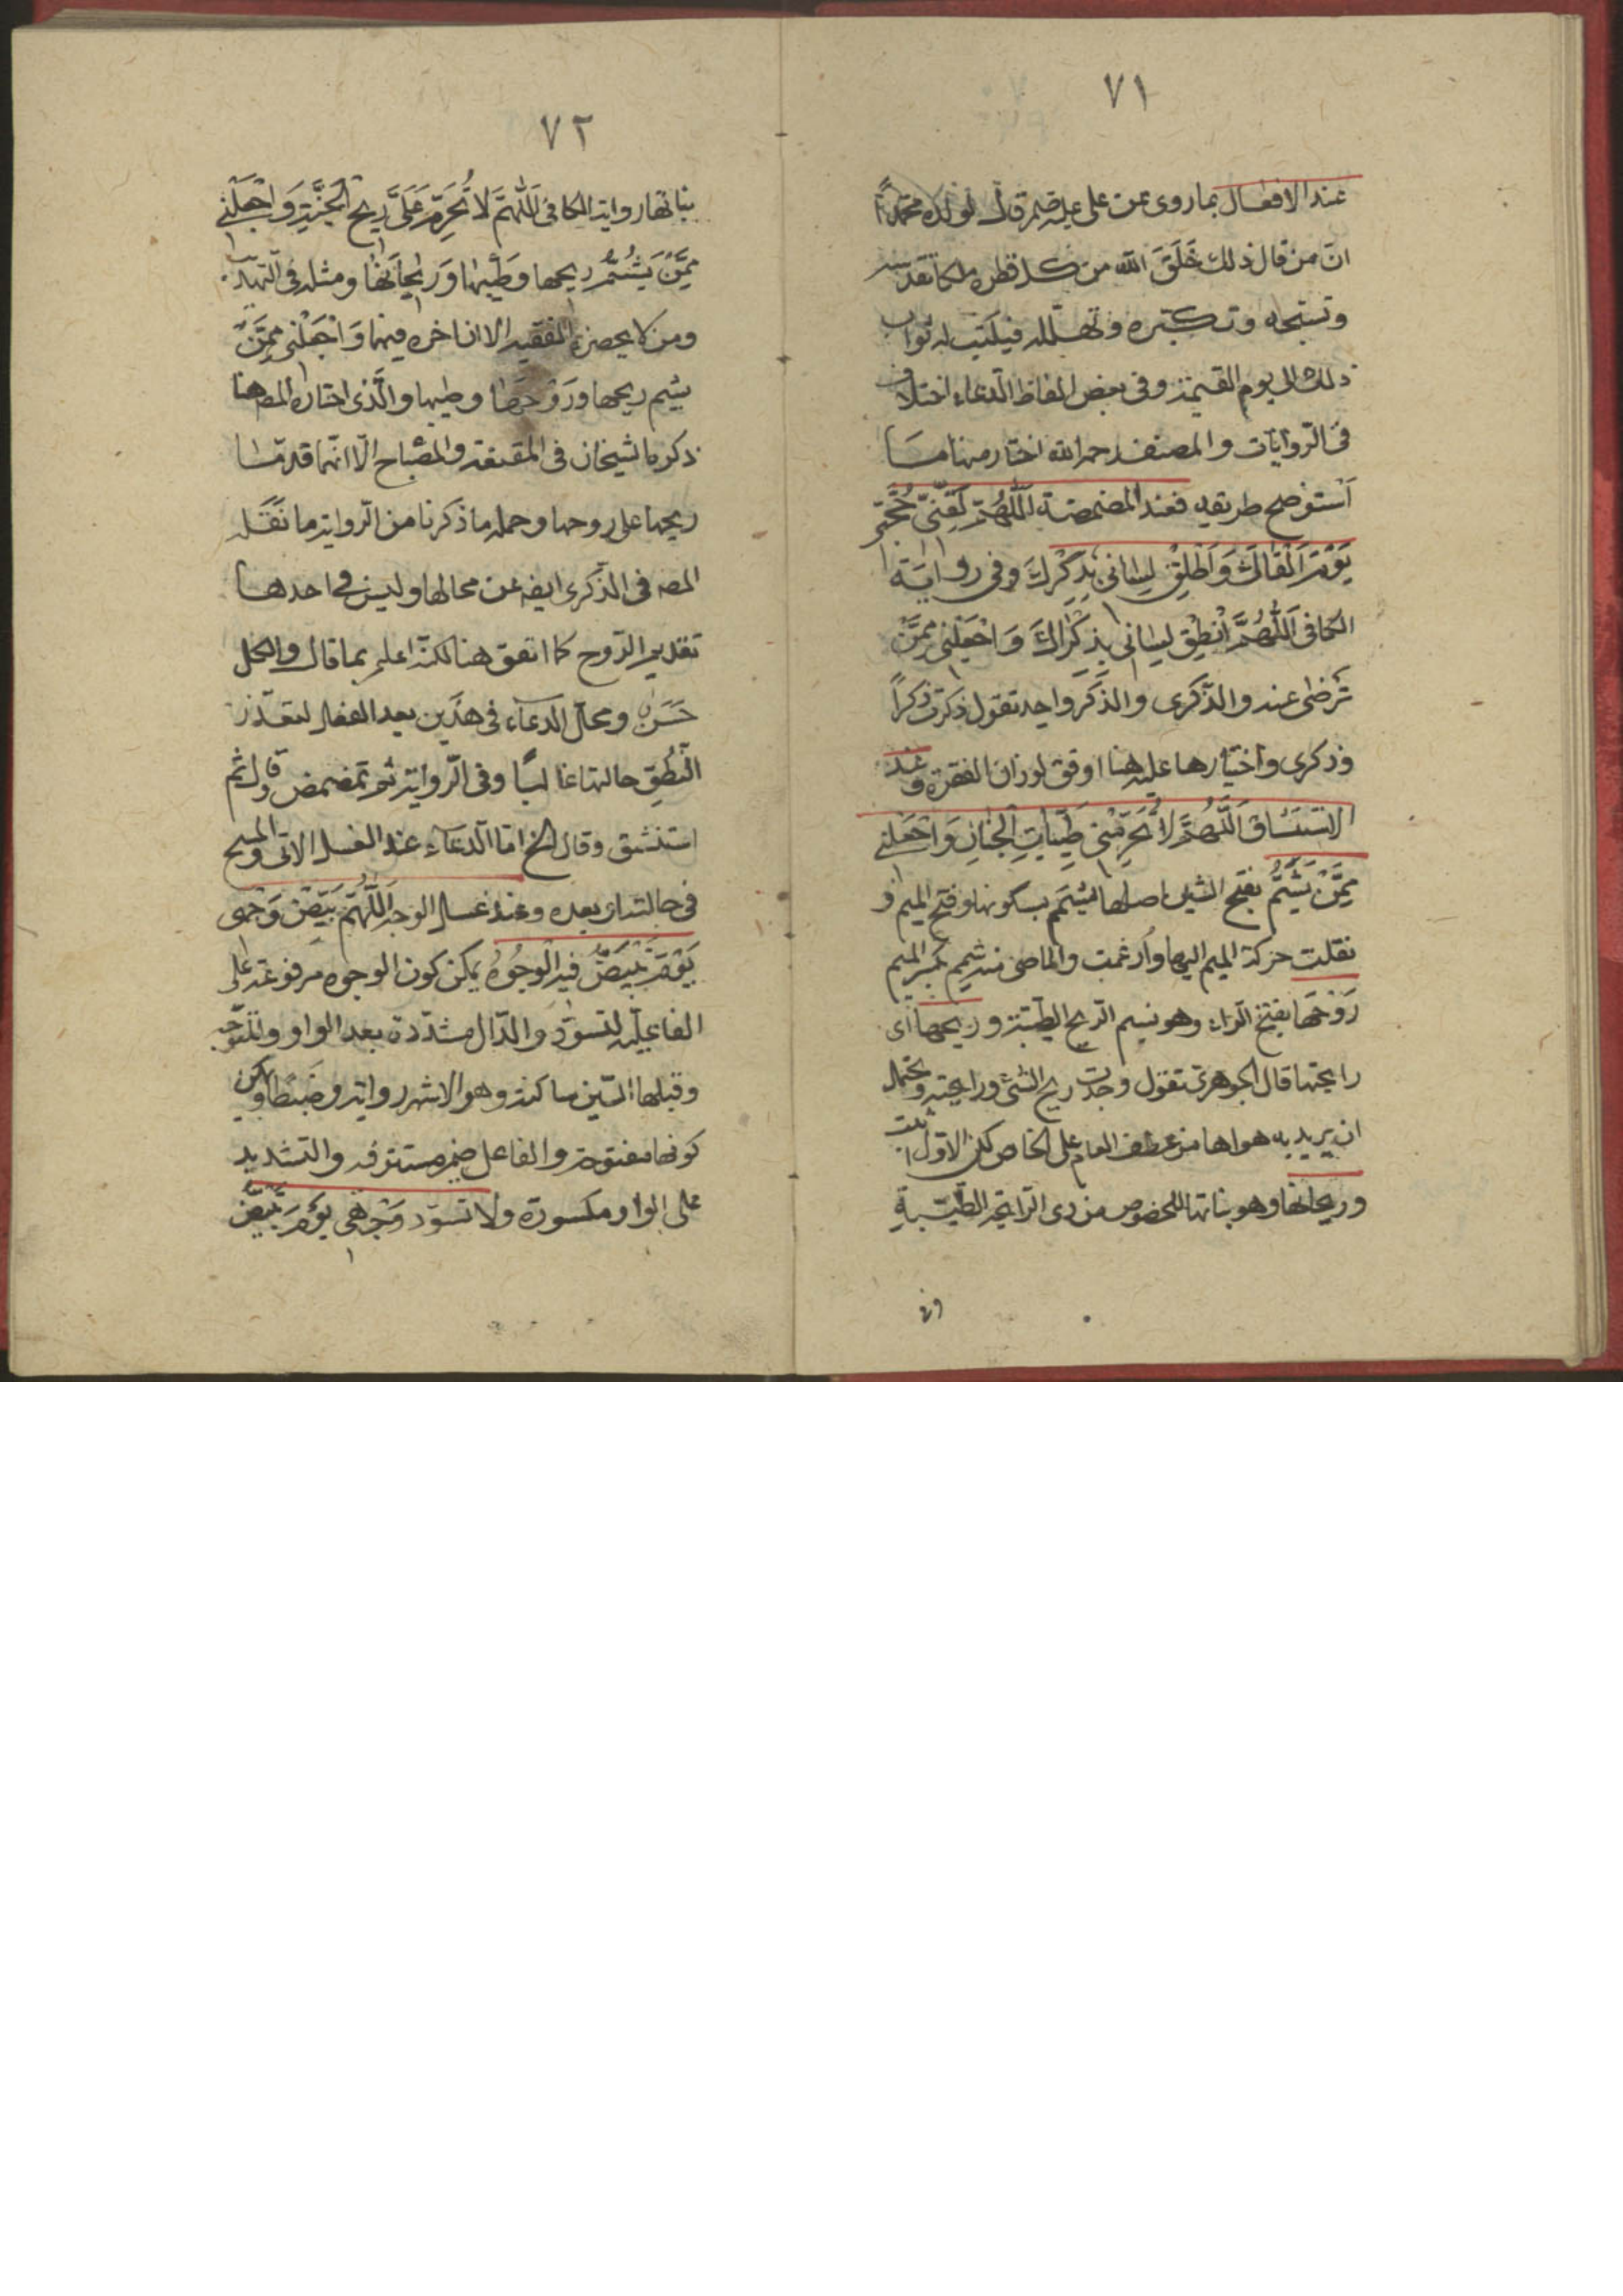 ٧١
عند الافعال بما روى عن على عليه قال لولده محمد
ان من قال ذلك خَلَقَ الله من كل قطره ملكا تقدسه
وتسبحه وتكبّره وتهلله فيكتب له ثواب
ذلك الى يوم القيمة وفى بعض الفاظ الدعاء اختلاف
فى الروايات والمصنف رحمه الله اختار منها ما
استوضح طريقه فعند المضمضة اَللّهُمَّ لَقِّنّى حُجَّتى
يَوْمَ اَلْقاكَ وَاَطْلِقْ لِسانى بِذِكْرِكَ وفى رواية
الكافى اَللّهُمَّ اَنْطِقْ لِسانى بِذِكْراكَ وَاجْعَلْنى مِمَّنْ
تَرْضى عنه والذّكرى والذّكر واحد تقول ذكرت ذكراً
وذكرى واختيارها عليه هنا اوفق لوزان الفقرة وعند
الاستنشاق اَللّهُمَّ لا تُحَرِّمْنى طَيِّباتِ الْجِنانِ وَاجْعَلْنى
مِمَّنْ يَشَمُّ بفتح الشين اصلها يشمم بسكونها وفتح الميم و
نقلت حركة الميم اليها وأدغمت والماضى منه شمم بكسر الميم
رَوْحَها بفتح الراء وهو نسيم الريح الطيبة وريحها اى
رايحتها قال الجوهرى تقول وجدت ريح الشئ ورايحته ويحتمل
ان يريد به هواها من عطف العام على الخاص لكن الاول
وريحانها وهو بناتها المخصوص من ذى الرايحة الطيّبة
وفى
٧٢
بناتها رواية الكافى اَللّهُمَّ لا تُحَرِّمْ عَلَىَّ ريحَ الْجَنَّةِ وَاجْعَلْنى
مِمَّنْ يَشَمُّ ريحها وَطيبَها وَرَيْحانَها ومثله فى التهذيب
ومن لا يحضره الفقيه الا ان اخره فيهما وَاجْعَلْنى مِمَّنْ
يشم ريحها ورَوْحَها وطيبها والّذى اختاره المص هنا
ذكره الشيخان فى المقنعة والمصباح الّا انّهما قدّما
ريحها على روحها وجمله ما ذكرنا من الرواية ما نَقَلَه
المص فى الذكرى ايضه عن محالها وليس فى احدها
تقديم الرّوح كما اتفق هنا لكنّه اعلم بما قال والكل
حَسَنٌ ومحل الدعاء فى هذين بعد الفعل لتعذّر
النُطقِ حالتها غالبًا وفى الرّواية ثم تمضمض وقال ثم
استنشق وقال الخ امّا الدعاء عند الغسل الاتى والمسح
فى حالتيه لا بعده وعند غسل الوجه اَللّهُمَّ بَيِّضْ وَجْهى
يَوْمَ تَبْيَضُّ فيهِ الْوُجُوهُ يمكن كون الوجوه مرفوعة على
الفاعليّة لتسودّ والدّال مشدّدة بعد الواو
وقبلها السّين ساكنة وهو الاشهر رواية وضَبْطًا ويمكن
كونها مفتوحة والفاعل ضمير مستتر فيه والتشديد
على الواو مكسورة ولا تسوّد وَجْهى يَوْمَ تَبْيَضُّ